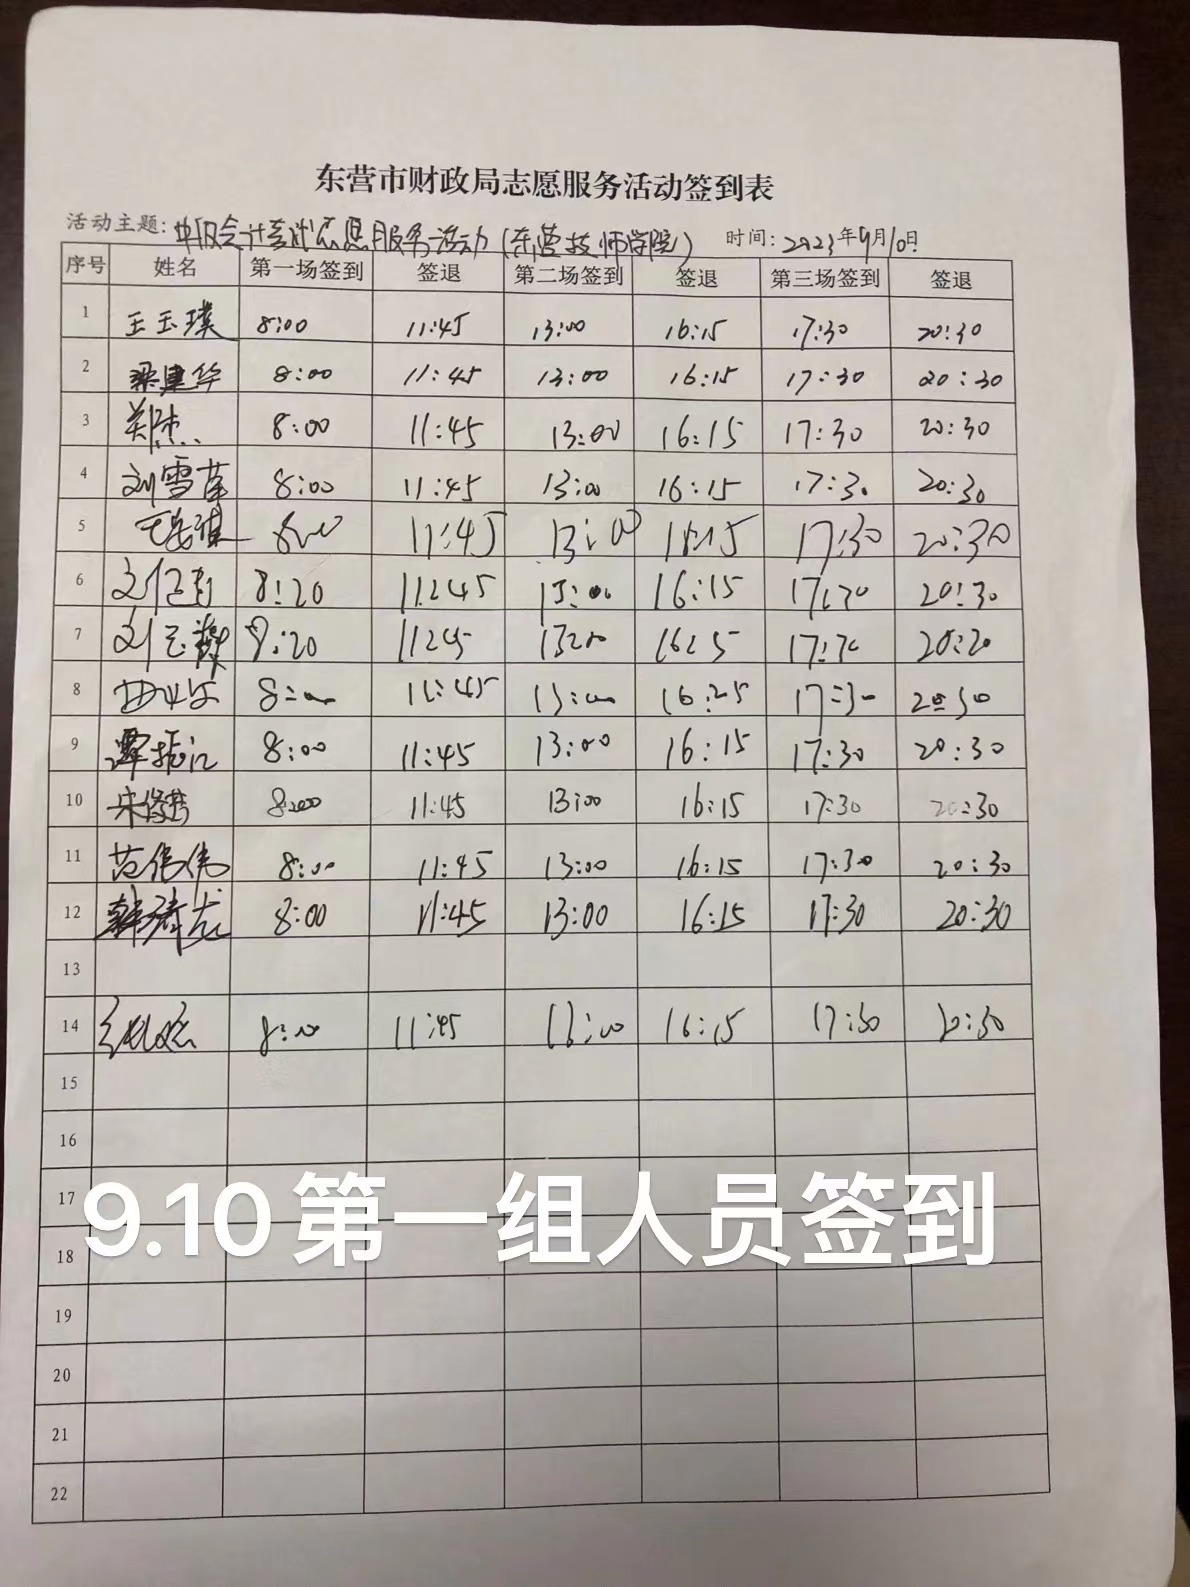 东营市财政局志愿服务活动签到表
活动主题:中级会计考试志愿服务活动(东营技师学院) 时间:2023年9月10日
序号 姓名 第一场签到 签退 第二场签到 签退 第三场签到 签退
1 王玉璞 8:00 11:45 13:00 16:15 17:30 20:30
2 梁建华 8:00 11:45 13:00 16:15 17:30 20:30
3 8:00 11:45 13:00 16:15 17:30 20:30
4 刘雪莲 8:00 11:45 13:00 16:15 17:30 20:30
5 8:00 11:45 13:00 16:15 17:30 20:30
6 8:20 11:45 13:00 16:15 17:30 20:30
7 8:20 11:45 13:00 16:15 17:30 20:20
8 8:00 11:45 13:00 16:25 17:30 20:30
9 谭振江 8:00 11:45 13:00 16:15 17:30 20:30
10 宋俊梦 8:00 11:45 13:00 16:15 17:30 20:30
11 范伟伟 8:00 11:45 13:00 16:15 17:30 20:30
12 韩涛龙 8:00 11:45 13:00 16:15 17:30 20:30
13
14 8:00 11:45 13:00 16:15 17:30 20:30
15
16
17
9.10第一组人员签到
18
19
20
21
22